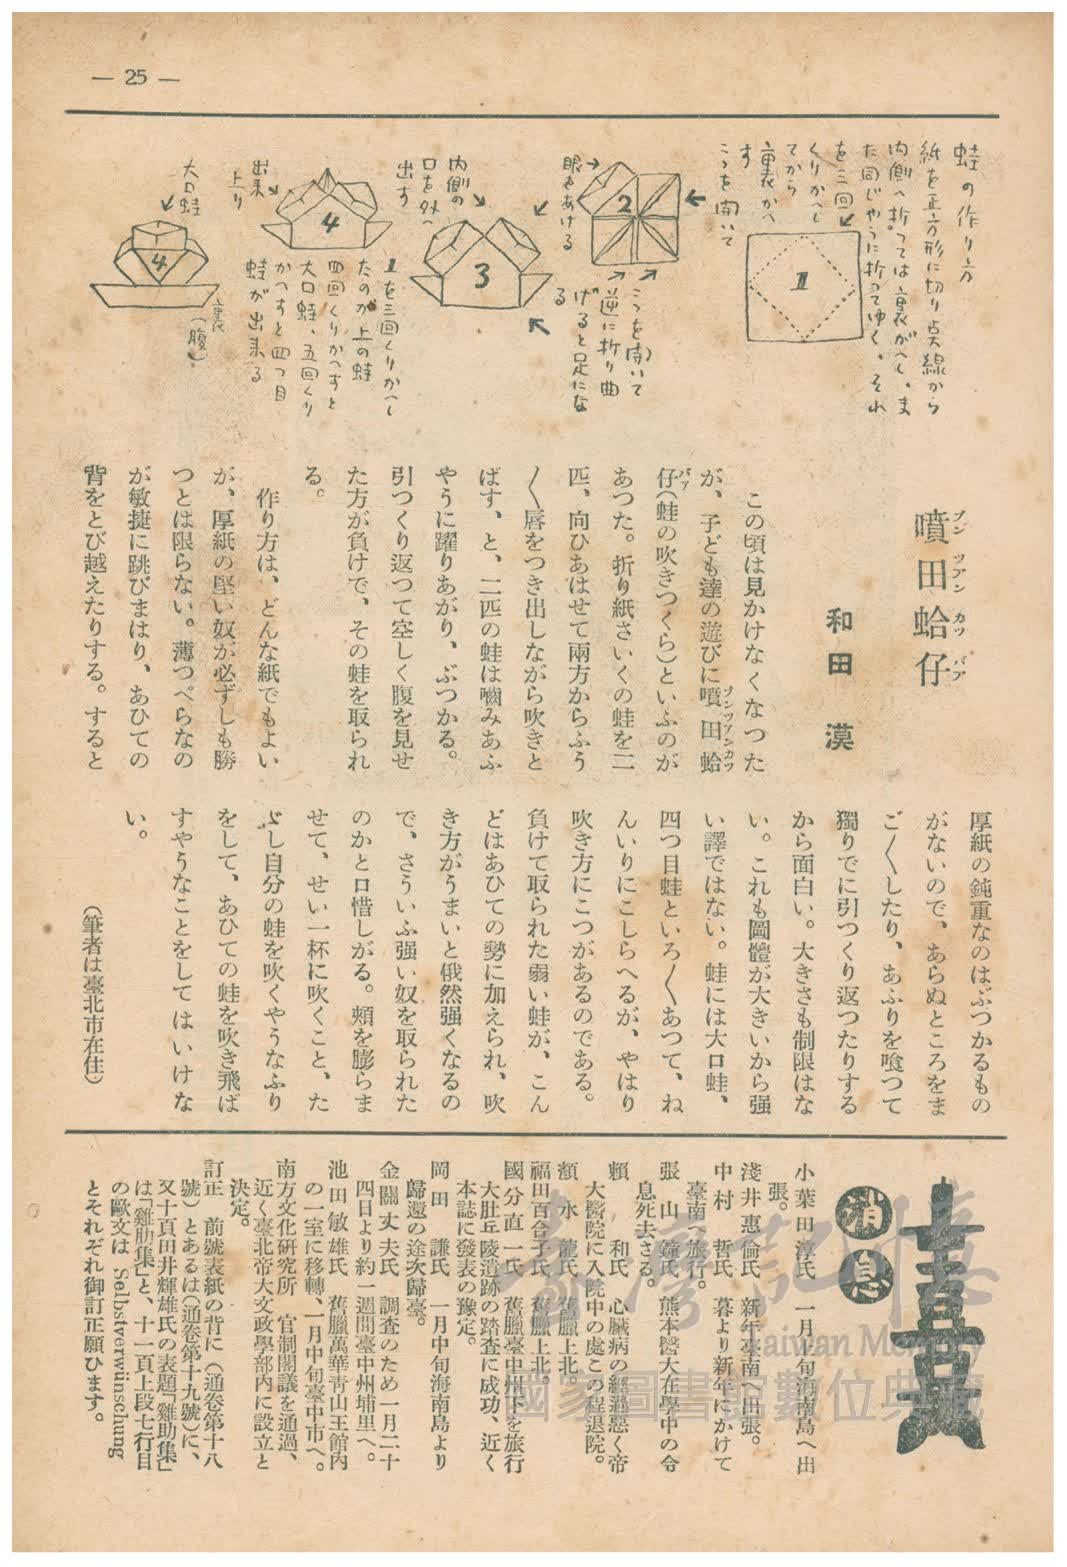 — 25 —
蛙の作り方
紙を正方形に切り点線から
内側へ折つては裏がへし、ま
た同じやうに折つてゆく、それ
を三回
くりかへし
てから
裏がへ
す
こつを開いて
1
眼をあける
2
こつを開いて
逆に折り曲
げると足にな
る
内側の
口を外へ
出す
3
1を三回くりかへし
たのが上の蛙
四回くりかへすと
大口蛙、五回くり
かへすと四つ目
蛙が出来る
出来
上り
4
大口蛙
4
裏
(腹)
噴田蛤仔
ブンツアンカツバア
和田漠
この頃は見かけなくなつた
が、子ども達の遊びに噴田蛤
ブンツアンカツ
仔(蛙の吹きつくら)といふのが
バア
あつた。折り紙さいくの蛙を二
匹、向ひあはせて兩方からふう
〳〵唇をつき出しながら吹きと
ばす、と、二匹の蛙は嚙みあふ
やうに躍りあがり、ぶつかる。
引つくり返つて空しく腹を見せ
た方が負けで、その蛙を取られ
る。
作り方は、どんな紙でもよい
が、厚紙の堅い奴が必ずしも勝
つとは限らない。薄つぺらなの
が敏捷に跳びまはり、あひての
背をとび越えたりする。すると
厚紙の鈍重なのはぶつかるもの
がないので、あらぬところをま
ご〳〵したり、あふりを喰つて
獨りでに引つくり返つたりする
から面白い。大きさも制限はな
い。これも圖體が大きいから强
い譯ではない。蛙には大口蛙、
四つ目蛙といろ〳〵あつて、ね
んいりにこしらへるが、やはり
吹き方にこつがあるのである。
負けて取られた弱い蛙が、こん
どはあひての勢に加えられ、吹
き方がうまいと俄然强くなるの
で、さういふ强い奴を取られた
のかと口惜しがる。頰を膨らま
せて、せい一杯に吹くこと、た
ゞし自分の蛙を吹くやうなふり
をして、あひての蛙を吹き飛ば
すやうなことをしてはいけな
い。
(筆者は臺北市在住)
消息
小葉田淳氏 一月上旬海南島へ出
張。
淺井惠倫氏 新年臺南へ出張。
中村哲氏 暮より新年にかけて
臺南へ旅行。
張山鐘氏 熊本醫大在學中の令
息死去さる。
賴和氏 心臟病の經過惡く帝
大醫院に入院中の處この程退院。
瀨水龍氏 舊臘上北。
福田百合子氏 舊臘上北。
國分直一氏 舊臘臺中州下を旅行
大肚丘陵遺跡の踏査に成功、近く
本誌に發表の豫定。
岡田謙氏 一月中旬海南島より
歸還の途次歸臺。
金關丈夫氏 調査のため一月二十
四日より約一週間臺中州埔里へ。
池田敏雄氏 舊臘萬華青山王館內
の一室に移轉、一月中旬臺中市へ。
南方文化硏究所 官制閣議を通過、
近く臺北帝大文政學部內に設立と
決定。
訂正 前號表紙の背に(通卷第十八
號)とあるは(通卷第十九號)に、
又十頁田井輝雄氏の表題「雞助集」
は「雞肋集」と、十一頁上段七行目
の歐文は Selbstverwünschung
とそれぞれ御訂正願ひます。
臺灣記憶
Taiwan Memory
國家圖書館數位典藏